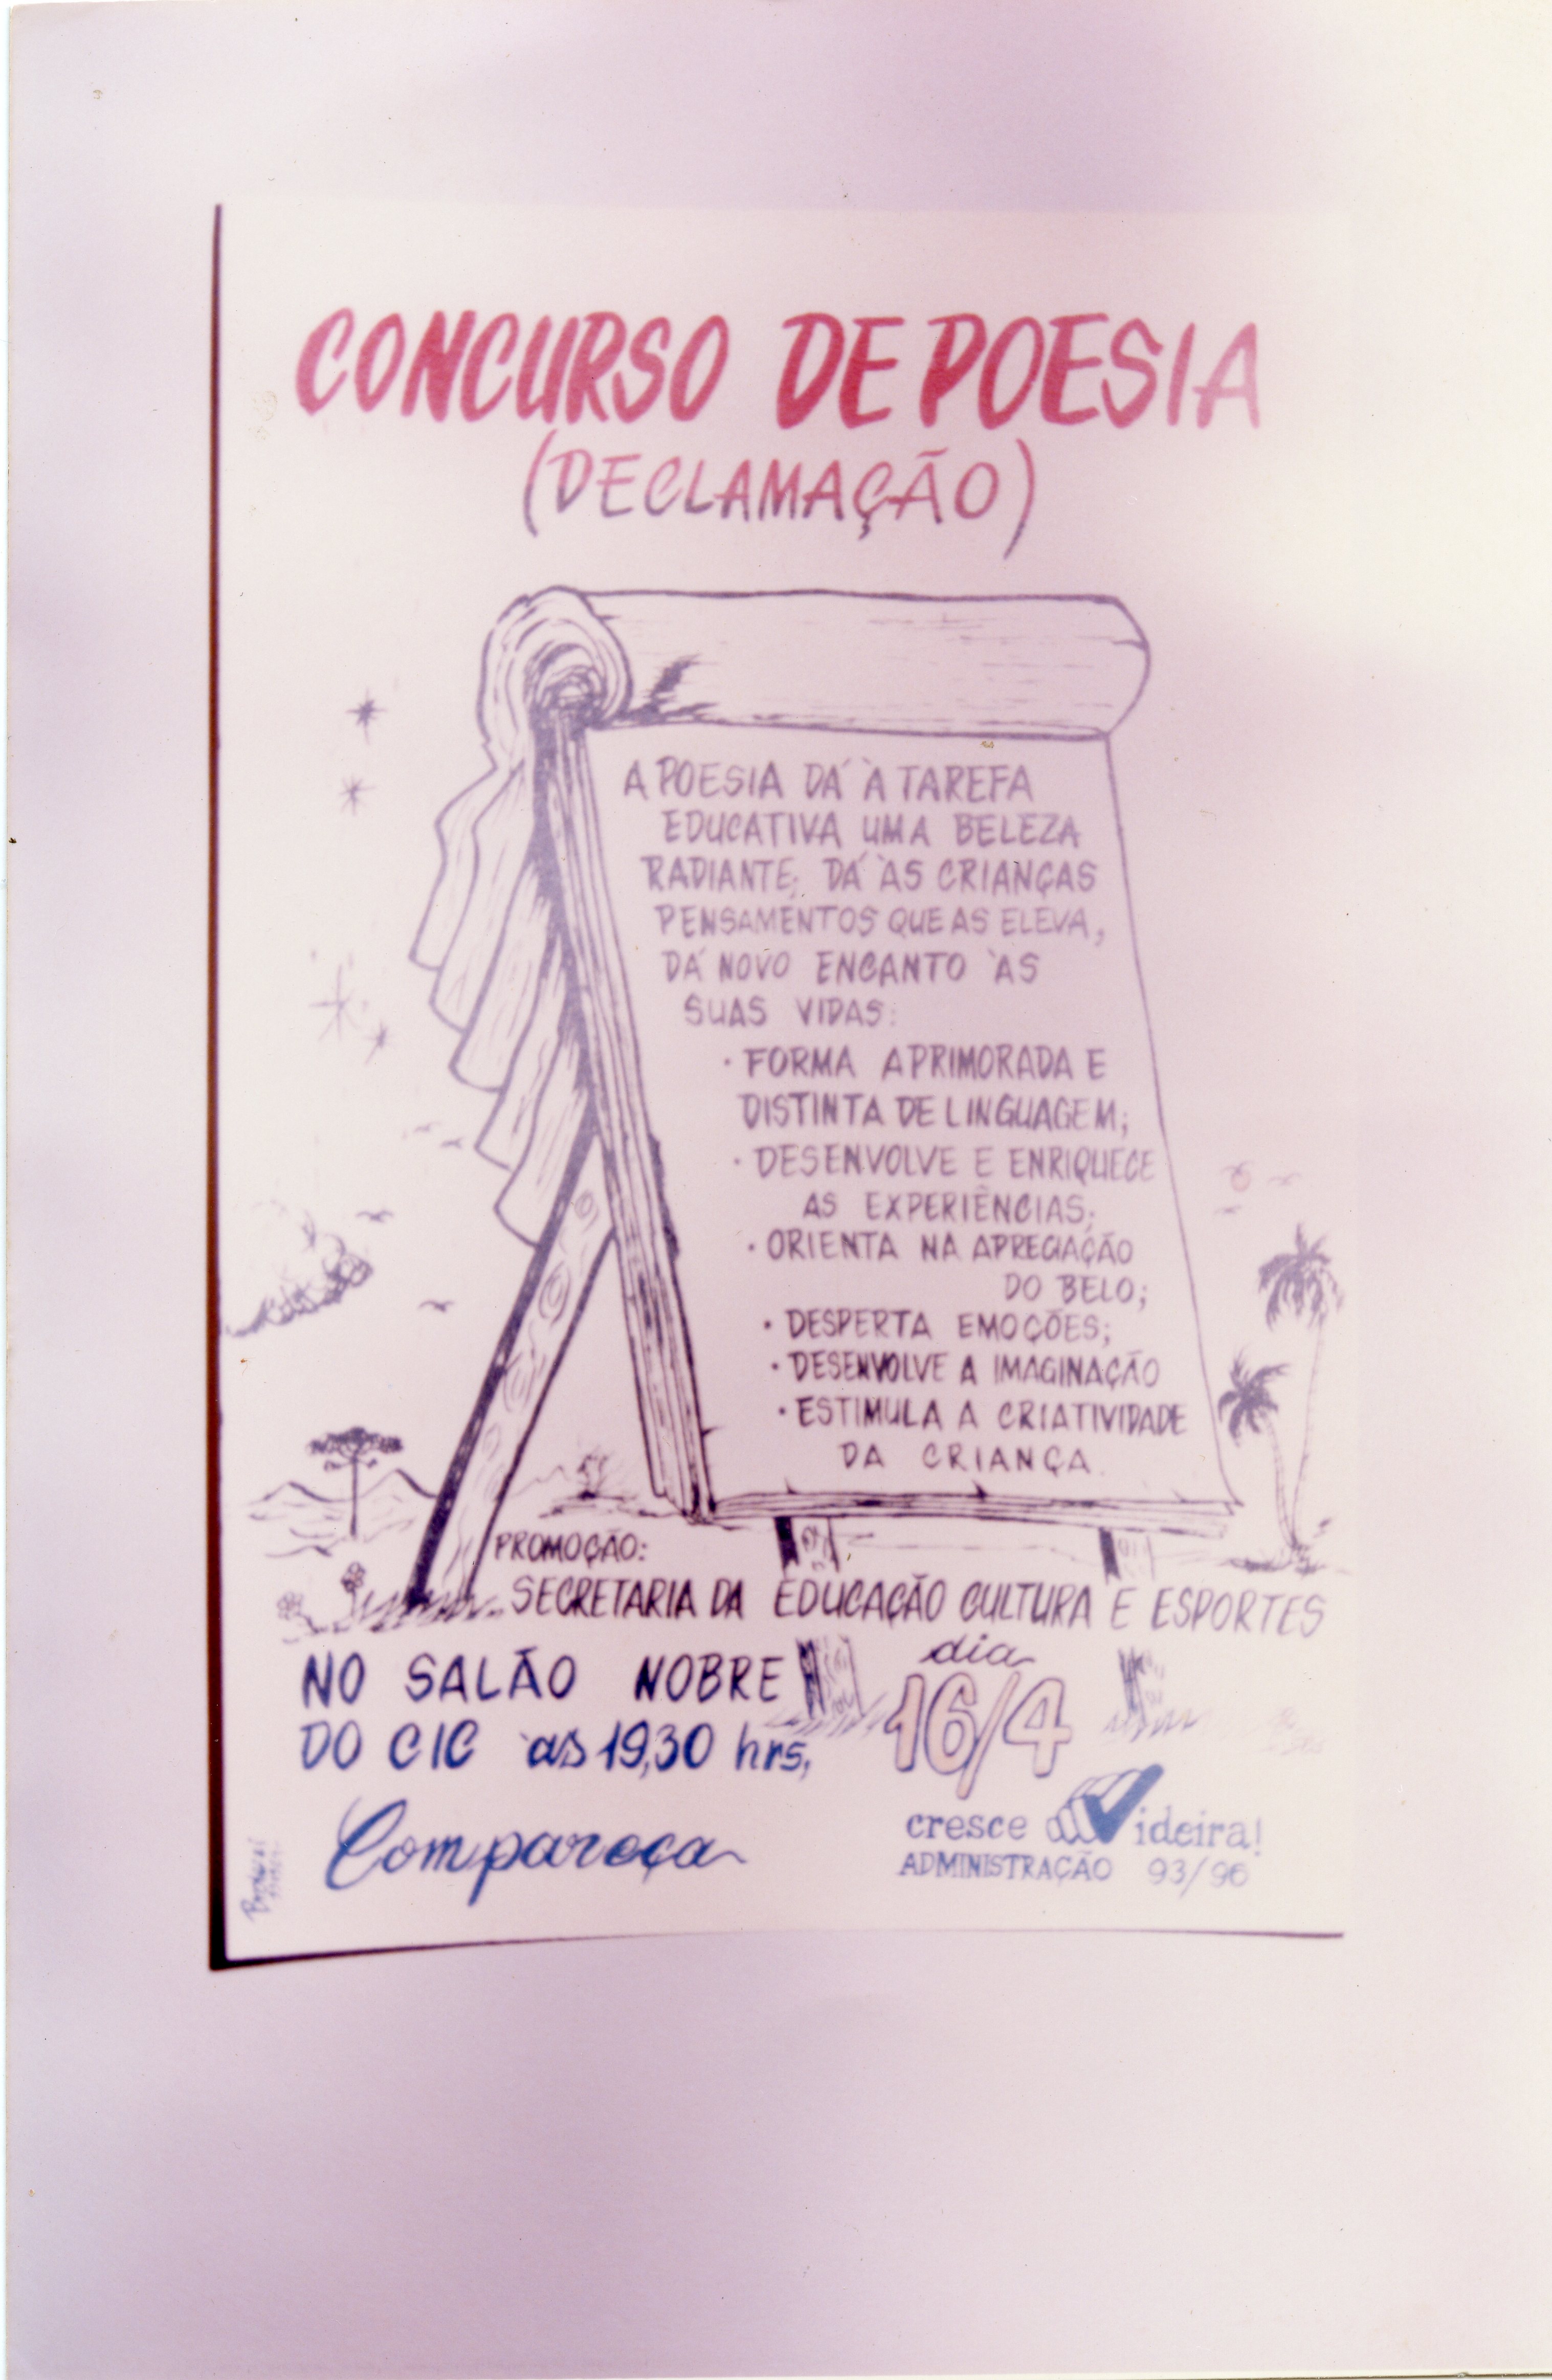 CONCURSO DE POESIA
(DECLAMAÇÃO)
A POESIA DÁ À TAREFA
EDUCATIVA UMA BELEZA
RADIANTE; DÁ ÀS CRIANÇAS
PENSAMENTOS QUE AS ELEVA,
DÁ NOVO ENCANTO ÀS
SUAS VIDAS:
· FORMA APRIMORADA E
DISTINTA DE LINGUAGEM;
· DESENVOLVE E ENRIQUECE
AS EXPERIÊNCIAS;
· ORIENTA NA APRECIAÇÃO
DO BELO;
· DESPERTA EMOÇÕES;
· DESENVOLVE A IMAGINAÇÃO
· ESTIMULA A CRIATIVIDADE
DA CRIANÇA.
PROMOÇÃO:
SECRETARIA DA EDUCAÇÃO CULTURA E ESPORTES
NO SALÃO NOBRE
DO CIC às 19,30 hrs,
dia
16/4
Compareça
cresce Videira!
ADMINISTRAÇÃO 93/96